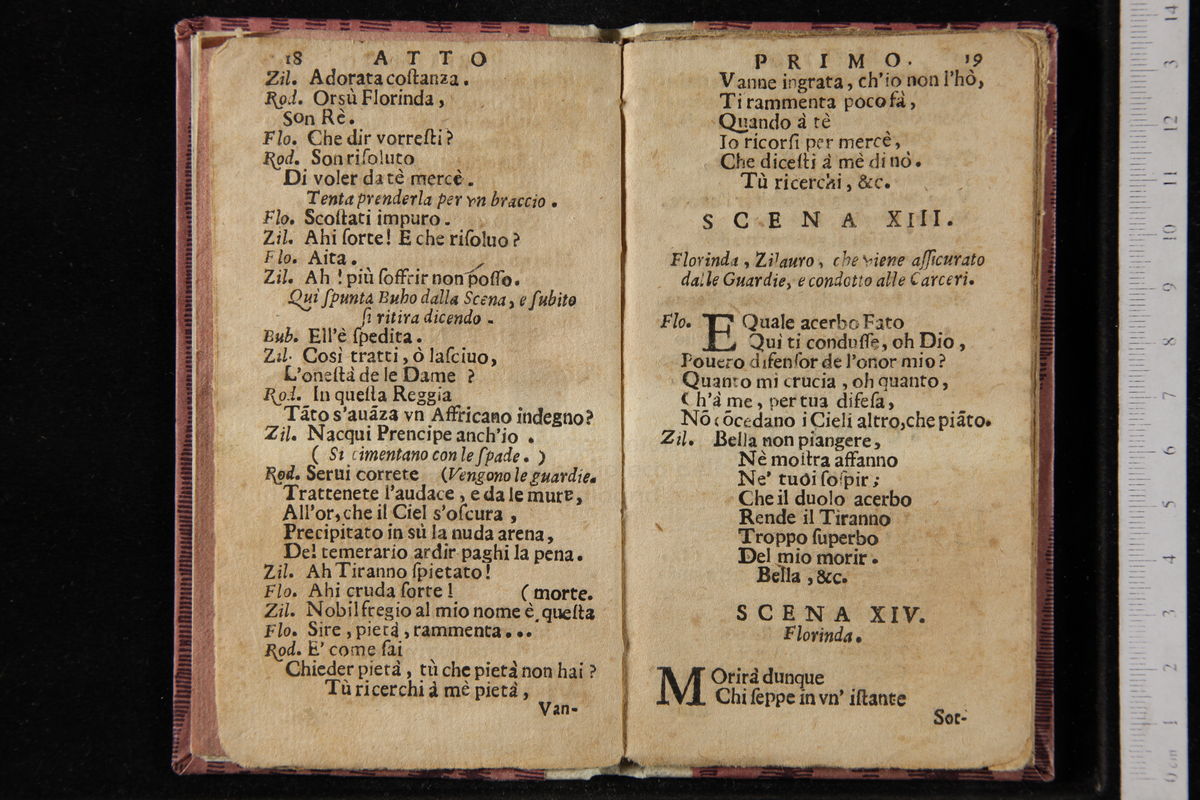 18 ATTO
Zil. Adorata coſtanza.
Rod. Orsù Florinda,
Son Rè.
Flo. Che dir vorreſti?
Rod. Son riſoluto
Di voler da tè mercè.
Tenta prenderla per vn braccio.
Flo. Scoſtati impuro.
Zil. Ahi ſorte! E che riſoluo?
Flo. Aita.
Zil. Ah! più ſoffrir non poſſo.
Qui ſpunta Bubo dalla Scena, e ſubito
ſi ritira dicendo.
Bub. Ell'è ſpedita.
Zil. Così tratti, ò laſciuo,
L'oneſtà de le Dame?
Rod. In queſta Reggia
Tāto s'auāza vn Affricano indegno?
Zil. Nacqui Prencipe anch'io.
(Si cimentano con le ſpade.)
Rod. Serui correte (Vengono le guardie.
Trattenete l'audace, e da le mura,
All'or, che il Ciel s'oſcura,
Precipitato in sù la nuda arena,
Del temerario ardir paghi la pena.
Zil. Ah Tiranno ſpietato!
Flo. Ahi cruda ſorte! (morte.
Zil. Nobil fregio al mio nome è queſta
Flo. Sire, pietà, rammenta...
Rod. E' come ſai
Chieder pietà, tù che pietà non hai?
Tù ricerchi à mè pietà,
Van-
PRIMO. 19
Vanne ingrata, ch'io non l'hò,
Ti rammenta poco fà,
Quando à tè
Io ricorſi per mercè,
Che diceſti à mè di nò.
Tù ricerchi, &c.
SCENA XIII.
Florinda, Zilauro, che viene aſſicurato
dalle Guardie, e condotto alle Carceri.
Flo. E Quale acerbo Fato
Quì ti conduſſe, oh Dio,
Pouero difenſor de l'onor mio?
Quanto mi crucia, oh quanto,
Ch'à me, per tua difeſa,
Nō cōcedano i Cieli altro, che piāto.
Zil. Bella non piangere,
Nè moſtra affanno
Ne' tuoi ſoſpir;
Che il duolo acerbo
Rende il Tiranno
Troppo ſuperbo
Del mio morir.
Bella, &c.
SCENA XIV.
Florinda.
MOrirà dunque
Chi ſeppe in vn' iſtante
Sot-
0 cm 1 2 3 4 5 6 7 8 9 10 11 12 3 14